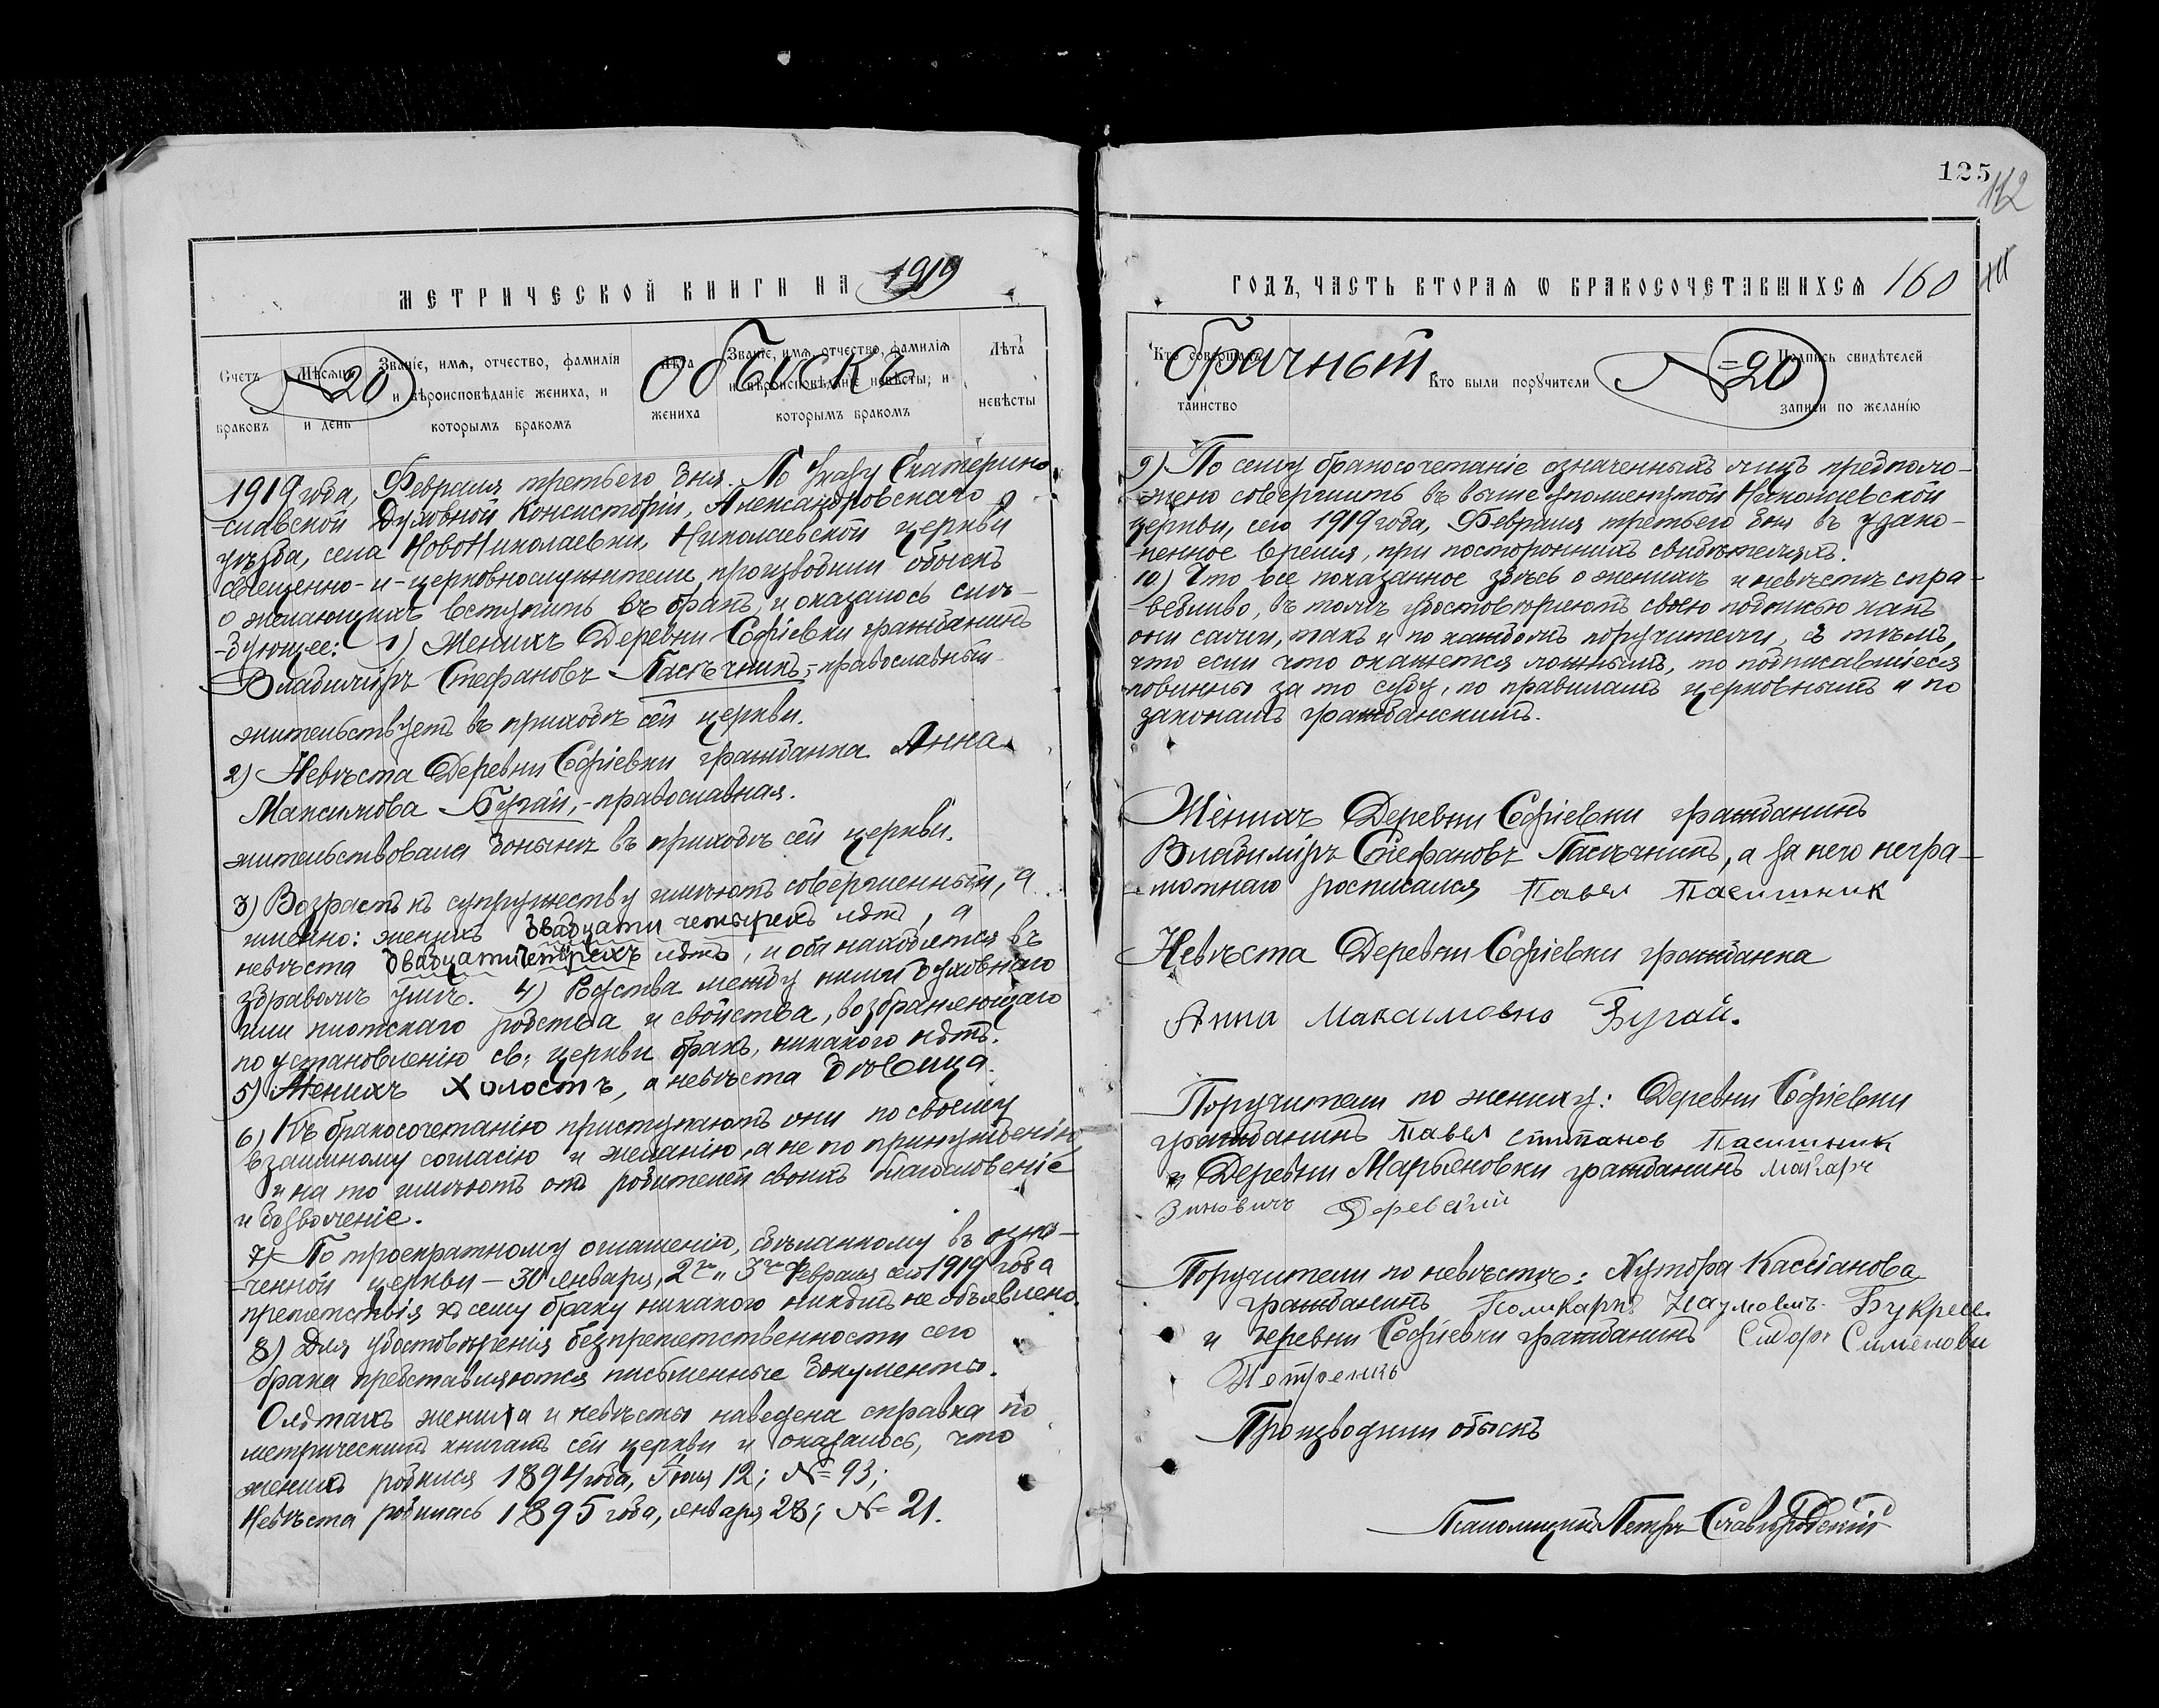 МЕТРИЧЕСКОЙ КНИГИ НА 1919
Счетъ браковъ
Мѣсяцъ и день
Званіе, имя, отчество, фамилія и вѣроисповѣданіе жениха, и которымъ бракомъ
Лѣта жениха
Званіе, имя, отчество, фамилія и вѣроисповѣданіе невѣсты, и которымъ бракомъ
Лѣта невѣсты
№ 20 Обыскъ
1919 года, Февраля третьего дня. По Указу Екатерино
славской Духовной Консисторіи, Александровскаго
уѣзда, села НовоНиколаевки, Николаевской церкви
священно-и-церковнослужители, производили обыскъ
о желающихъ вступить въ бракъ, и оказалось слѣ-
-дующее: 1) Женихъ Деревни Софіевки гражданинъ
Владиміръ Стефановъ Пасѣчникъ, - православный
жительствуетъ въ приходѣ сей церкви.
2) Невѣста Деревни Софіевки гражданка Анна
Максимова Бугай, - православная.
жительствовала донынѣ въ приходѣ сей церкви.
3) Возрастъ къ супружеству имѣютъ совершенный, а
именно: женихъ двадцати четырехъ лѣтъ, а
невѣста двадцатичетырехъ лѣтъ, и оба находятся въ
здравомъ умѣ. 4) Родства между ними духовнаго
или плотскаго родства и свойства, возбраняющаго
по установленію св: церкви бракъ, никакого нѣтъ.
5) Женихъ Холостъ, а невѣста Дѣвица.
6) Къ бракосочетанію приступаютъ они по своему
взаимному согласію и желанію, а не по принужденію,
и на то имѣютъ отъ родителей своихъ благословеніе
и дозволеніе.
7) По троекратному оглашенію, сдѣланному въ озна-
-ченной церкви - 30 января, 2го и 3го Февраля сего 1919 года
препятствія къ сему браку никакого никѣмъ не объявлено.
8) Для удостовѣренія безпрепятственности сего
брака представляются письменные документы.
О лѣтахъ жениха и невѣсты наведена справка по
метрическимъ книгамъ сей церкви и оказалось, что
женихъ родился 1894 года, Іюля 12; № 93;
Невѣста родилась 1895 года, января 28; № 21.
125
112
ГОДЪ, ЧАСТЬ ВТОРАЯ Ѡ БРАКОСОЧЕТАВШИХСЯ 160
Кто совершалъ таинство
Кто были поручители
Подпись свидѣтелей записи по желанію
Брачный. № 20
9) По сему бракосочетаніе означенныхъ лицъ предполо-
-жено совершить въ вышеупомянутой Николаевской
церкви, сего 1919 года, Февраля третьего дня въ узако-
-ненное время, при постороннихъ свидѣтеляхъ.
10) Что все показанное здѣсь о женихѣ и невѣстѣ спра-
-ведливо, въ томъ удостовѣряютъ своею подписью какъ
они сами, такъ и по каждомъ поручители, съ тѣмъ,
что если что окажется ложнымъ, то подписавшіеся
повинны за то суду, по правиламъ церковнымъ и по
законамъ гражданскимъ.
Женихъ Деревни Софіевки гражданинъ
Владиміръ Стефановъ Пасѣчникъ, а за него негра-
-мотнаго росписался Павел Пасишник
Невѣста Деревни Софіевки гражданка
Анна Максимовно Бугай.
Поручители по женихѣ: Деревни Софіевки
гражданинъ Павел Стипанов Пасишник
и Деревни Марьяновки гражданинъ Макаръ
Зиновичъ
Поручители по невѣстѣ: Хутора Кассіанова
гражданинъ Поликарпъ Наумовъ
и деревни Софіевки гражданинъ Сидоръ
Производили обыскъ
Псаломщикъ Петръ